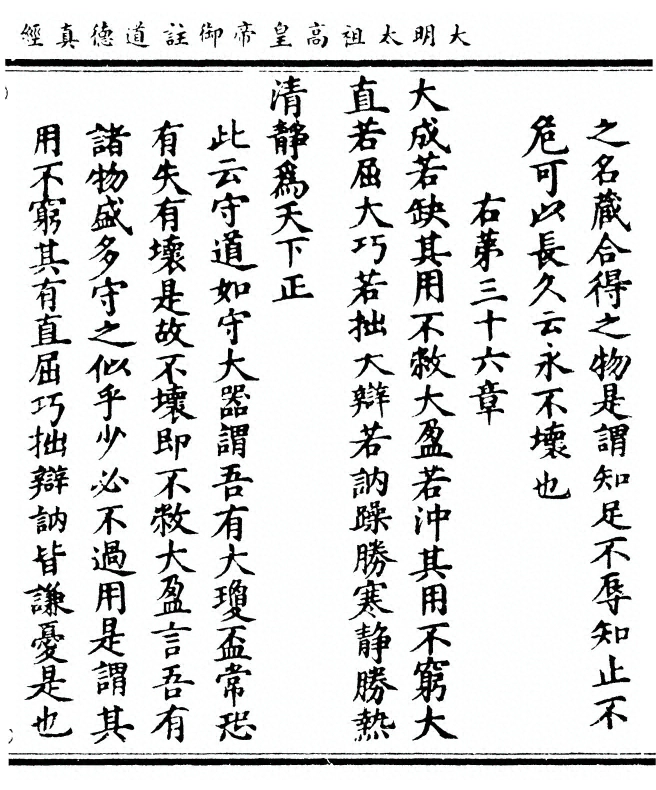 大明太祖高皇帝御註道德真經
之名藏合得之物是謂知足不辱知止不
危可以長久云永不壞也
右第三十六章
大成若缺其用不敝大盈若沖其用不窮大
直若屈大巧若拙大辯若訥躁勝寒静勝熱
清靜爲天下正
此云守道如守大器謂吾有大瓊盃常恐
有失有壞是故不壞即不敝大盈言吾有
諸物盛多守之似乎少必不過用是謂其
用不窮其有直屈巧拙辯訥皆謙憂是也